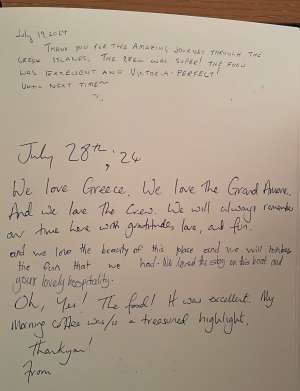 July 19 2024
THANK YOU FOR THE AMAZING JOURNEY THROUGH THE
GREEK ISLANDS. THE CREW WAS SUPER! THE FOOD
WAS EXCELLENT AND VIKTORIA - PERFECT!
UNTIL NEXT TIME~
July 28th, '24
We love Greece. We love The Grand
And we love The Crew. We will always remember
our time here with gratitude, love, and fun.
and we love the beauty of this place and we will
the fun that we had. We loved the stay on this boat and
your lovely hospitality.
Oh, Yes! The food! It was excellent. My
morning coffee was/is a treasured highlight.
Thankyou!
From